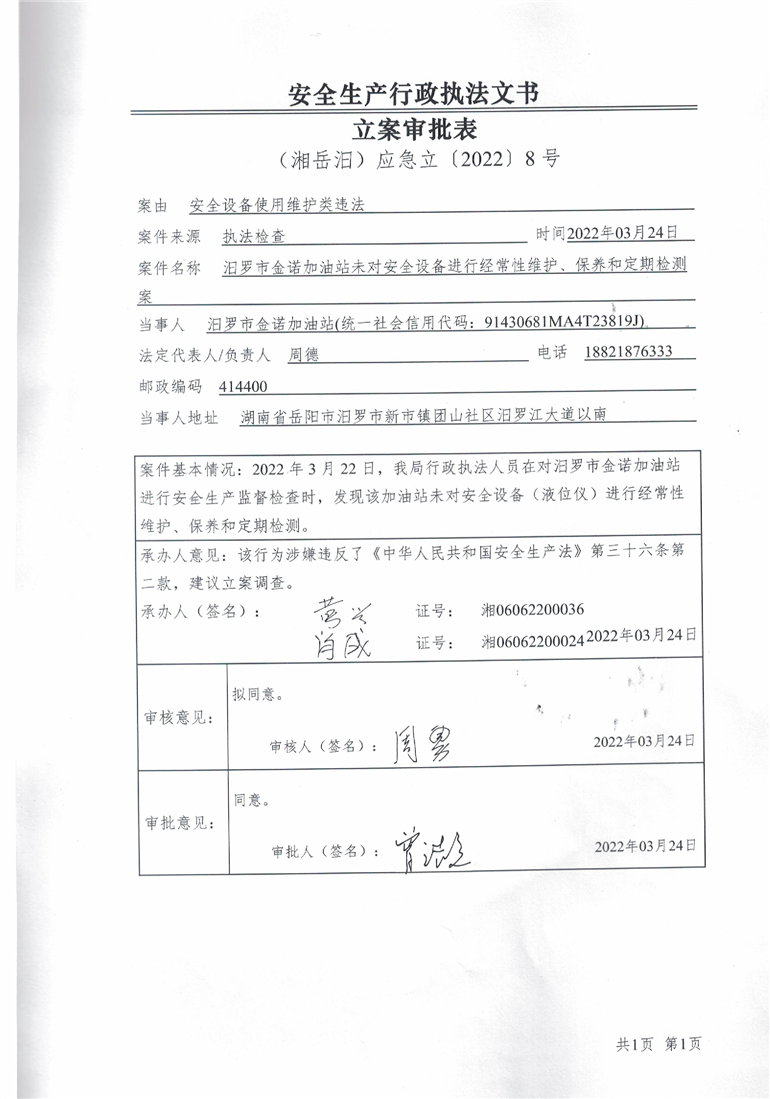 安全生产行政执法文书
立案审批表
（湘岳汨）应急立〔2022〕8号
案由 安全设备使用维护类违法
案件来源 执法检查 时间2022年03月24日
案件名称 汨罗市金诺加油站未对安全设备进行经常性维护、保养和定期检测
案
当事人 汨罗市金诺加油站(统一社会信用代码：91430681MA4T23819J)
法定代表人/负责人 周德 电话 18821876333
邮政编码 414400
当事人地址 湖南省岳阳市汨罗市新市镇团山社区汨罗江大道以南
案件基本情况：2022年3月22日，我局行政执法人员在对汨罗市金诺加油站
进行安全生产监督检查时，发现该加油站未对安全设备（液位仪）进行经常性
维护、保养和定期检测。
承办人意见：该行为涉嫌违反了《中华人民共和国安全生产法》第三十六条第
二款，建议立案调查。
承办人（签名）： 黄兴 证号： 湘06062200036
肖成 证号： 湘06062200024 2022年03月24日
拟同意。
审核意见：
审核人（签名）： 周勇 2022年03月24日
同意。
审批意见：
审批人（签名）： 2022年03月24日
共1页 第1页